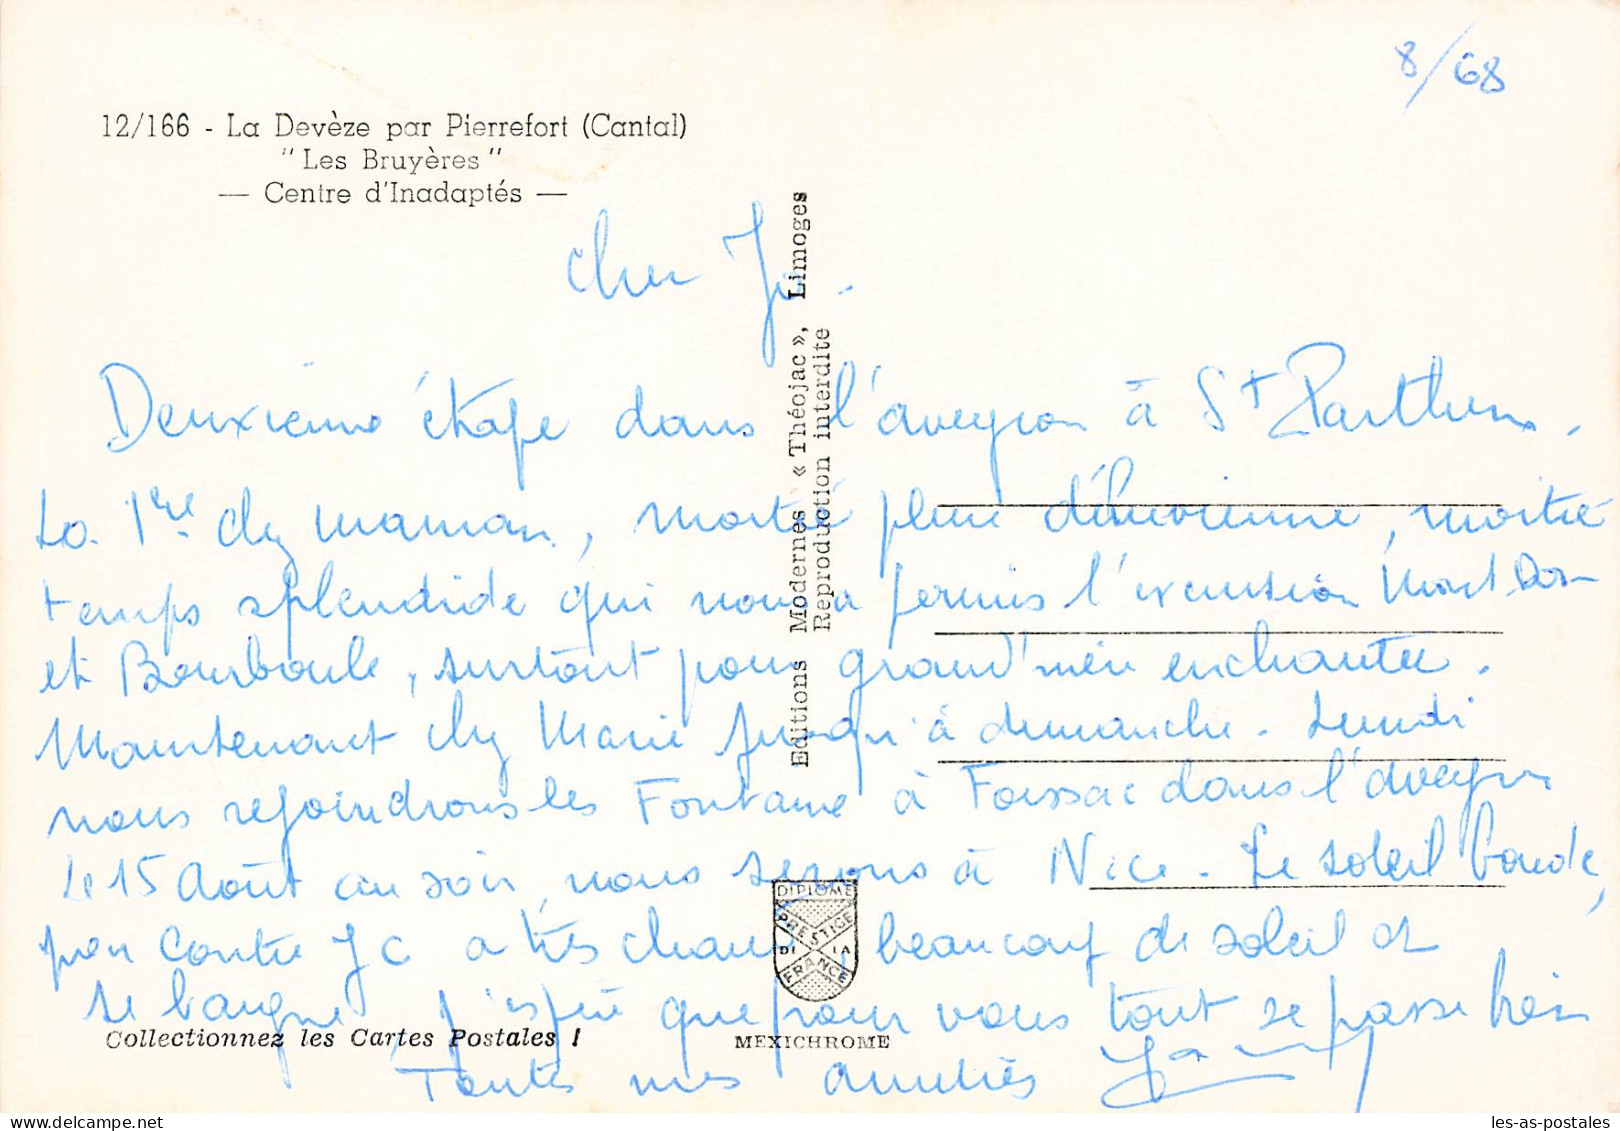 8/68
12/166 - La Devèze par Pierrefort (Cantal)
"Les Bruyères"
— Centre d'Inadaptés —
Cher
Deuxième étape dans l'aveyron à St Parthem.
La 1re chez maman, moitié pluie diluvienne, moitié
temps splendide qui nous a permis l'excursion Mont Dore
et Bourboule, surtout pour grand'mère enchantée.
Maintenant chez Marie jusqu'à dimanche. Lundi
nous rejoindrons les Fontaine à Foissac dans l'aveyron
Le 15 Août au soir nous serons à Nice. Le soleil boude,
par contre JC a très chaud, beaucoup de soleil et
se baigne J'espère que pour vous tout se passe bien
Toutes mes amitiés
Editions Modernes « Théojac », Limoges
Reproduction interdite
DIPLOME
PRESTIGE
DE LA
FRANCE
Collectionnez les Cartes Postales !
MEXICHROME
les-as-postales